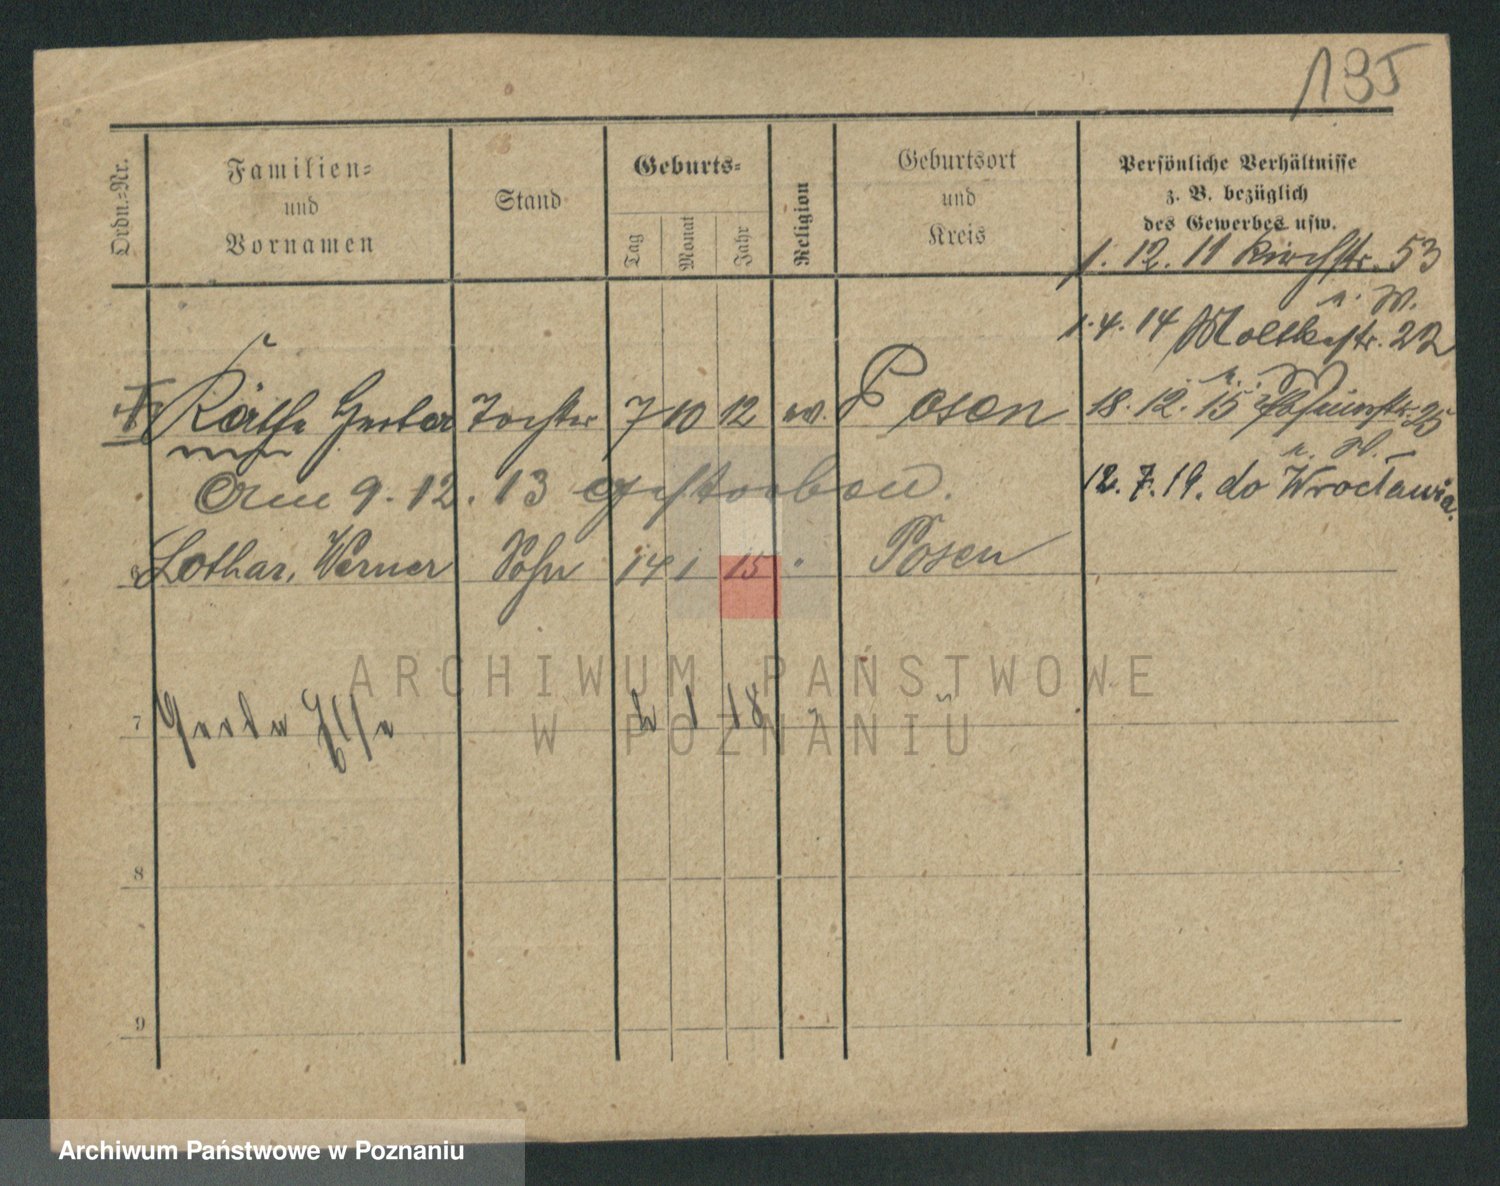 195
Ordn.-Nr.
Familien-
und
Vornamen
Stand
Geburts-
Tag
Monat
Jahr
Religion
Geburtsort
und
Kreis
Persönliche Verhältnisse
z. B. bezüglich
des Gewerbes usw.
1. 12. 11 Kirchstr. 53
n. W.
1. 4. 14 Moltkestr. 22
Käthe Tochter 7 10 12 ev. Posen 18. 12. 15
Am 9. 12. 13 gestorben. 12. 7. 19. do Wrocławia.
Lothar, Werner Sohn 14 1 15 " Posen
7 Gerda Else 2 1 18
8
9
ARCHIWUM PAŃSTWOWE
W POZNANIU
Archiwum Państwowe w Poznaniu